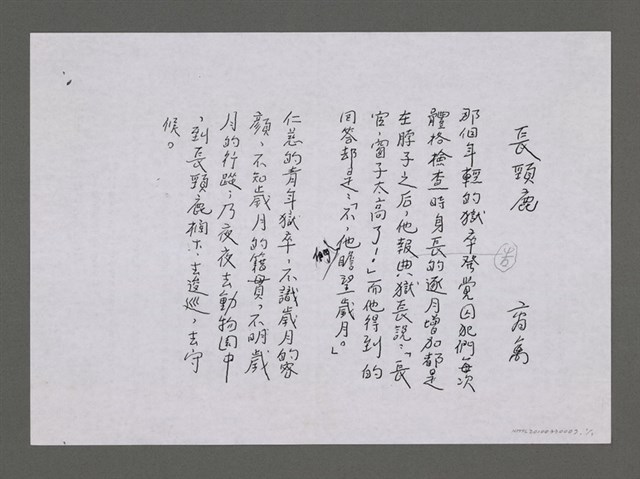 長頸鹿
商禽
那個年輕的獄卒發覺囚犯們每次
體格檢查時身長的逐月增加都是
在脖子之后,他報典獄長說:「長
官,窗子太高了!」而他得到的
回答却是:「不,他們瞻望歲月。」
仁慈的青年獄卒,不識歲月的容
顏,不知歲月的籍貫,不明歲
月的行蹤;乃夜夜去動物園中
,到長頸鹿欄下,去逡巡,去守
候。